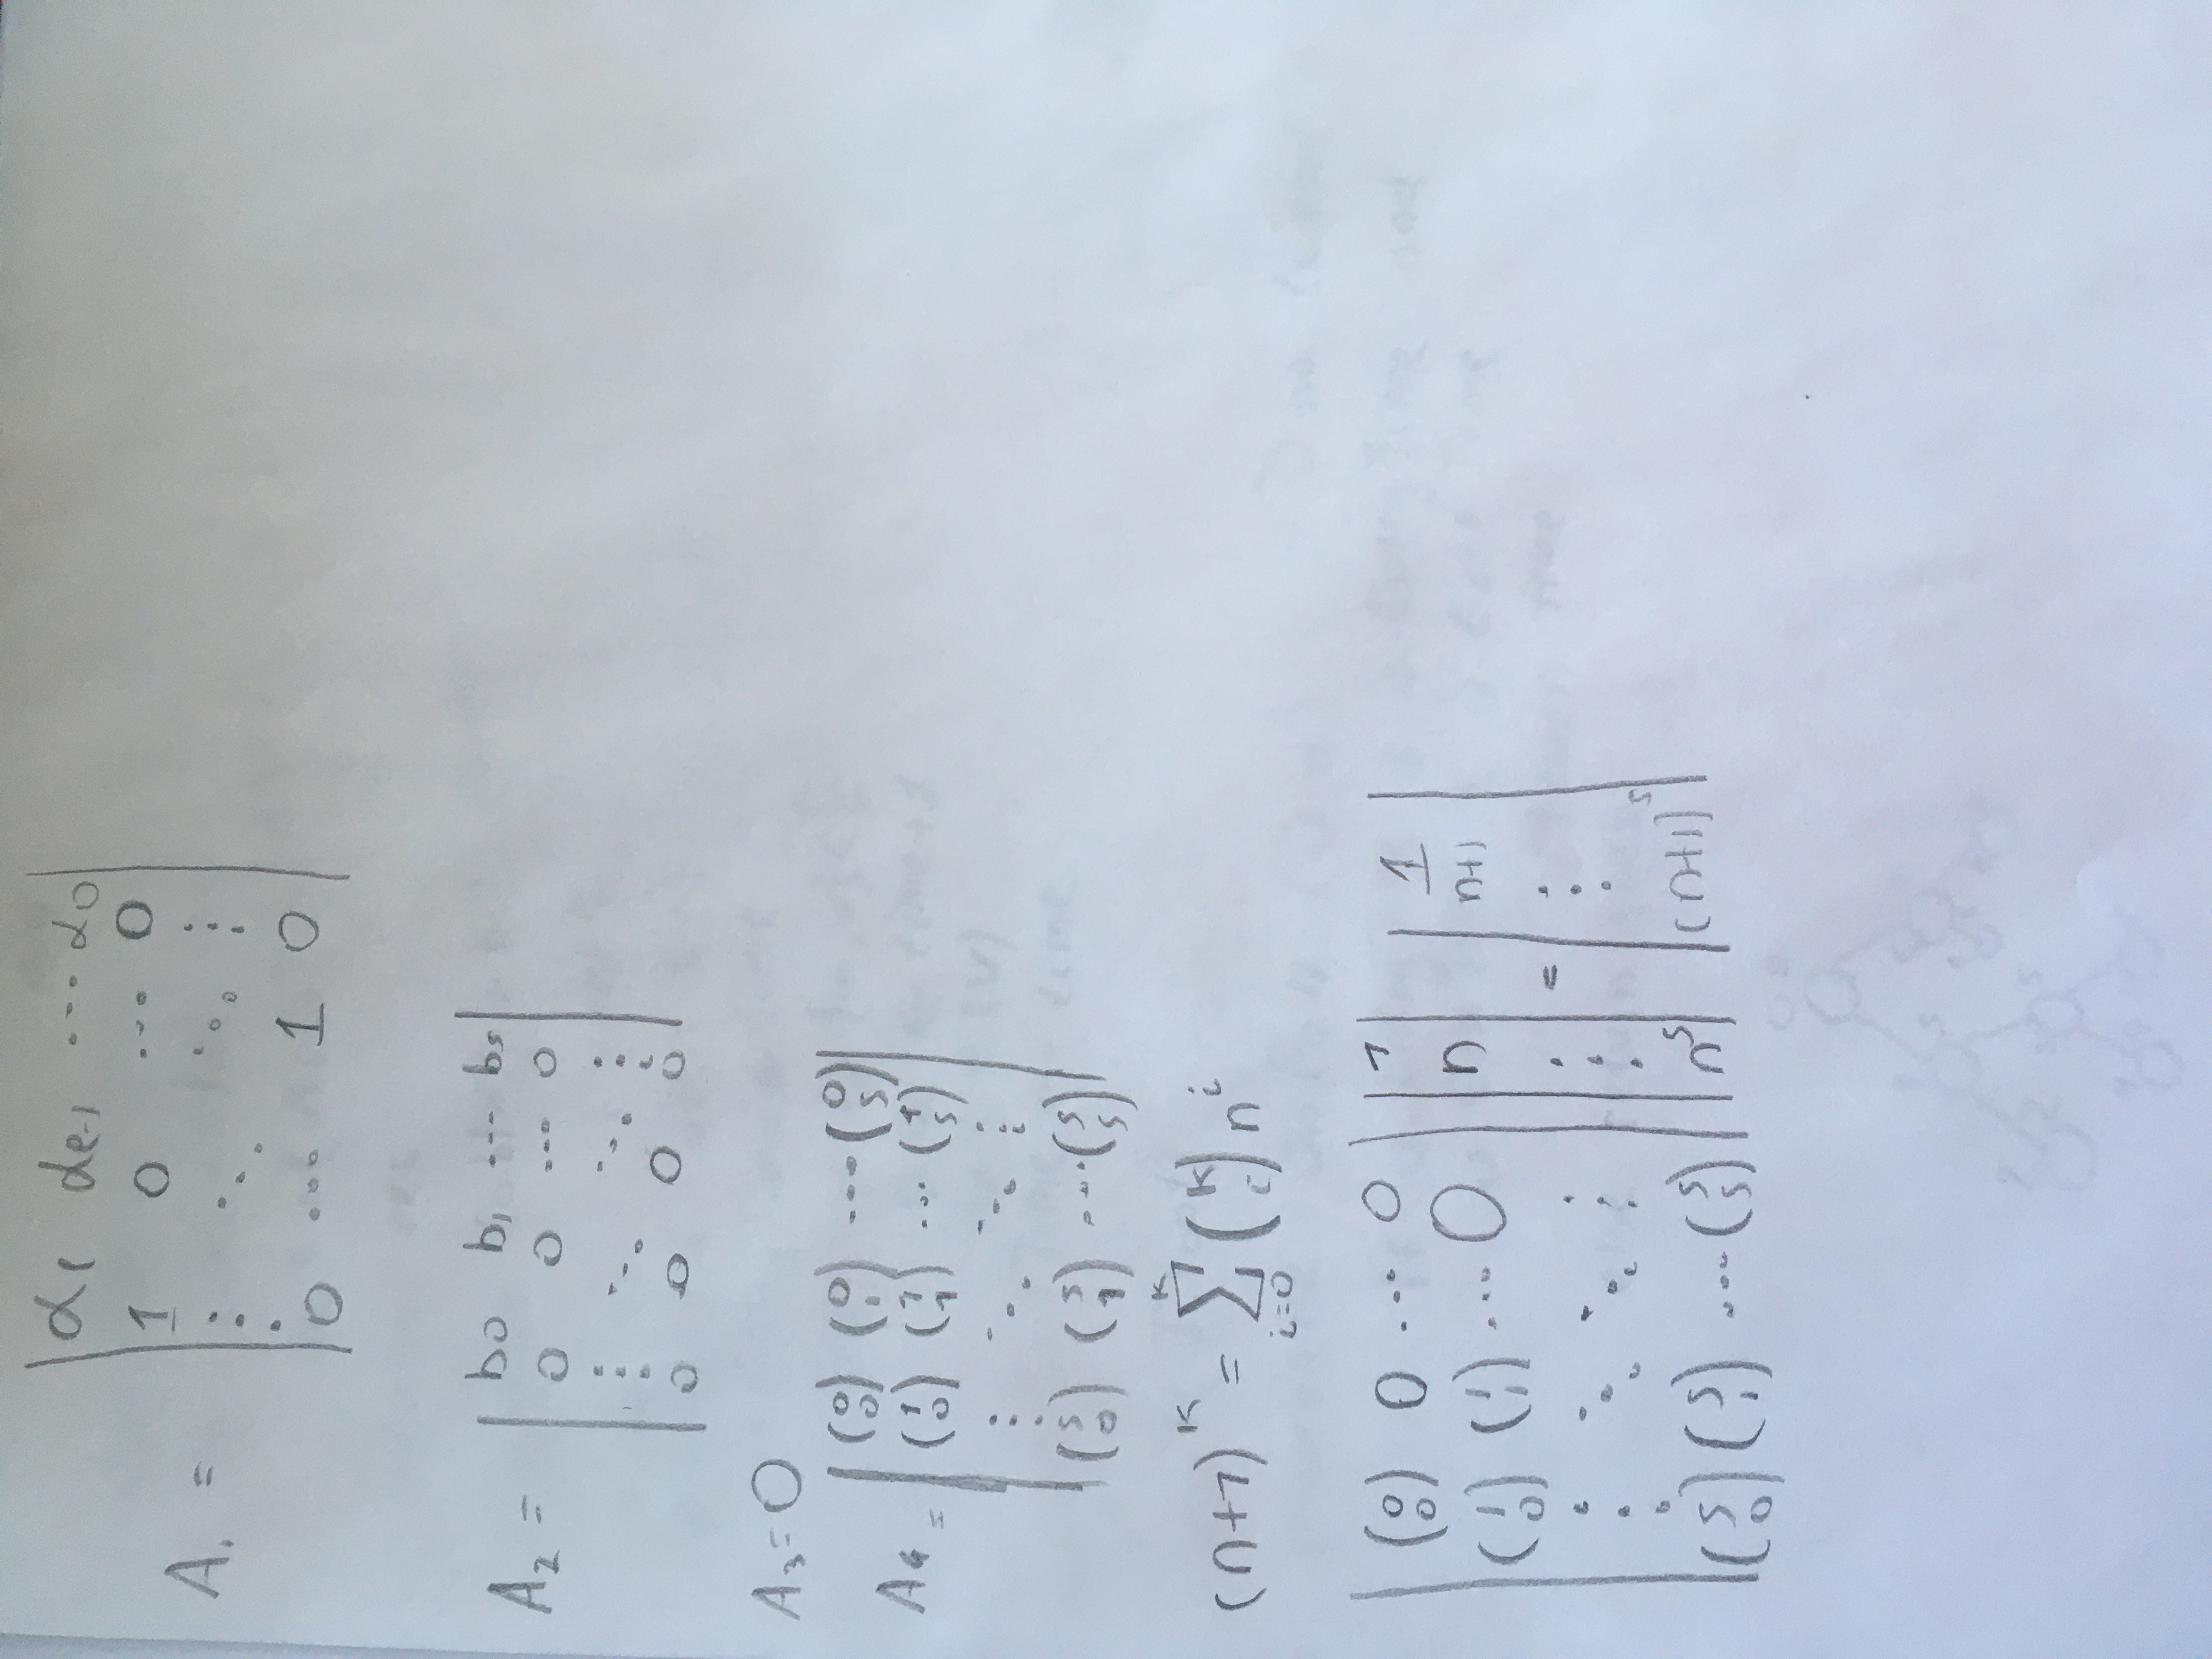 A₁ = | α_l α_{l-1} ... α_0 |
| 1 0 ... 0 |
| ⋮ ⋱ ⋱ ⋮ |
| 0 ... 1 0 |
A₂ = | b₀ b₁ ... b_s |
| 0 0 ... 0 |
| ⋮ ⋱ ⋱ ⋮ |
| 0 0 0 0 |
A₃ = 0
A₄ = | (0 0) (0 1) ... (0 s) |
| (1 0) (1 1) ... (1 s) |
| ⋮ ⋱ ⋱ ⋮ |
| (s 0) (s 1) ... (s s) |
(n+1)^k = ∑_{i=0}^{k} (k i) n^i
| (0 0) 0 ... 0 | | 1 | | 1 |
| (1 0) (1 1) ... 0 | | n | | n+1 |
| ⋮ ⋱ ⋱ ⋮ | | ⋮ | = | ⋮ |
| (s 0) (s 1) ... (s s) | | n^s | | (n+1)^s |